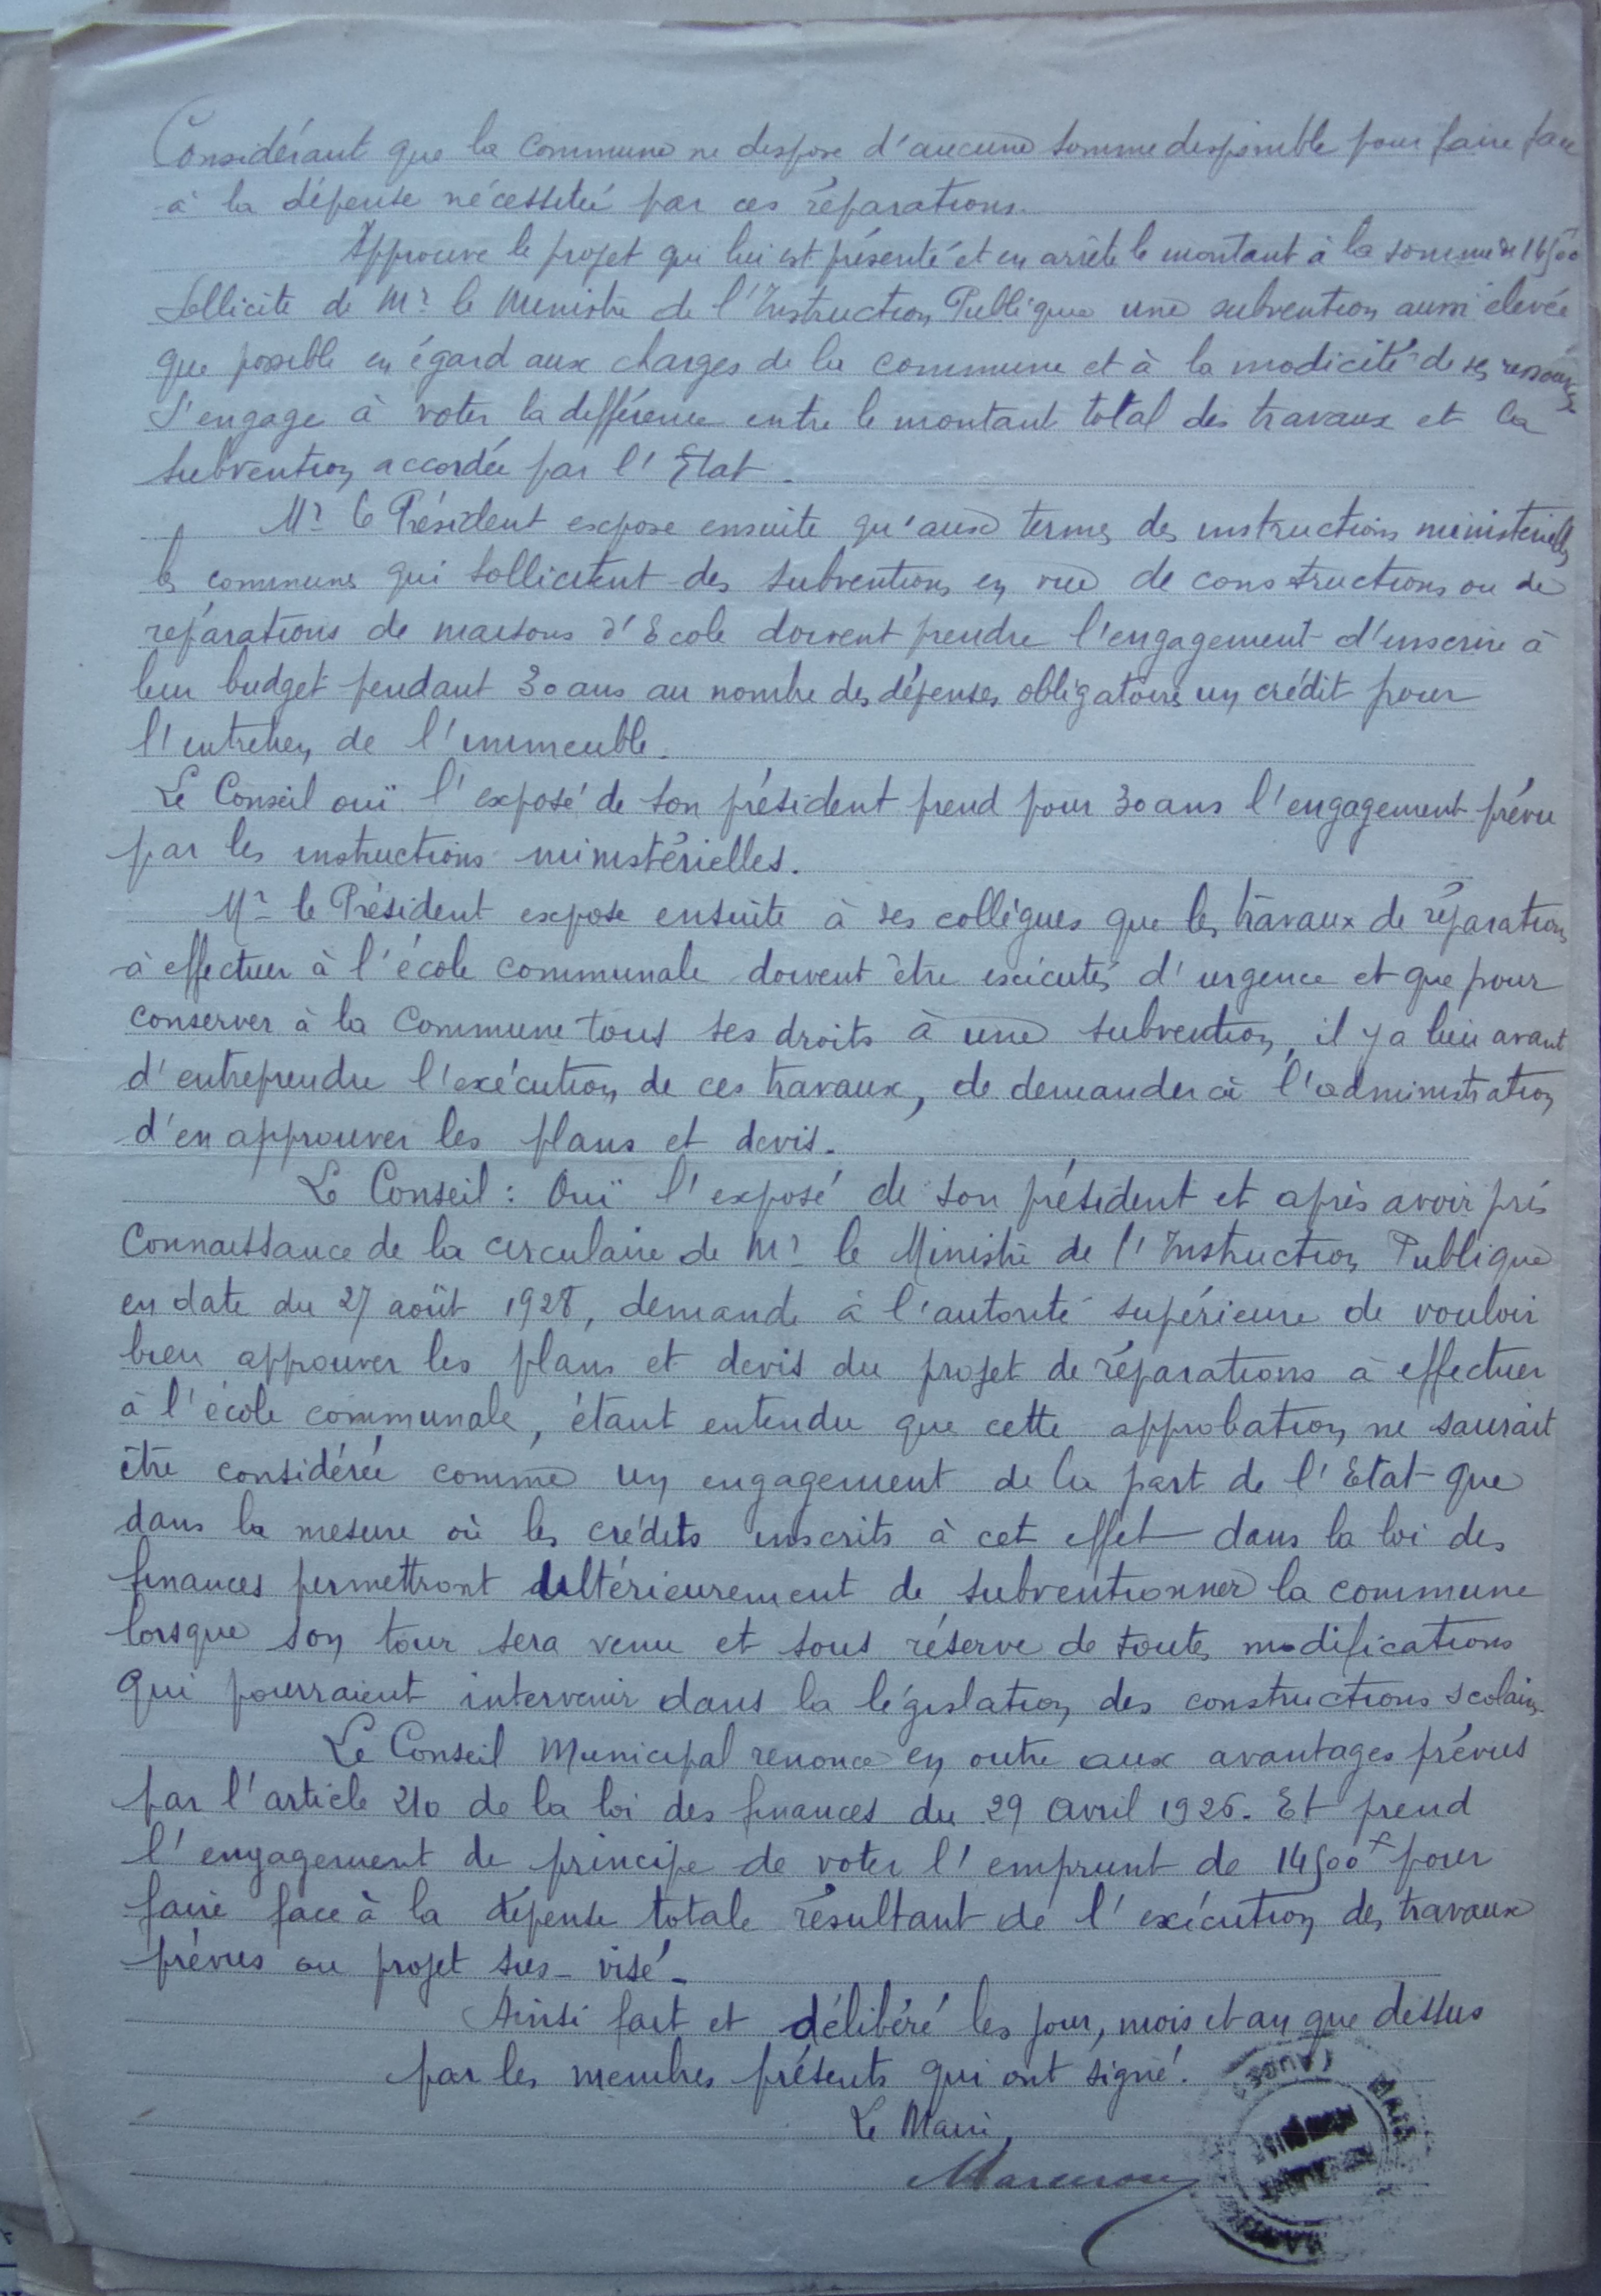 Considérant que la commune ne dispose d'aucune somme disponible pour faire face
à la dépense nécessitée par ces réparations.
Approuve le projet qui lui est présenté et en arrête le montant à la somme de
Sollicite de Mr le Ministre de l'Instruction Publique une subvention aussi élevée
que possible eu égard aux charges de la commune et à la modicité de ses ressources
S'engage à voter la différence entre le montant total des travaux et la
subvention accordée par l'Etat.
Mr le Président expose ensuite qu'aux termes des instructions ministérielles
les communes qui sollicitent des subventions en vue de constructions ou de
réparations de maisons d'Ecole doivent prendre l'engagement d'inscrire à
leur budget pendant 30 ans au nombre des dépenses obligatoires un crédit pour
l'entretien de l'immeuble.
Le Conseil ouï l'exposé de son président prend pour 30 ans l'engagement prévu
par les instructions ministérielles.
Mr le Président expose ensuite à ses collègues que les travaux de réparations
à effectuer à l'école communale doivent être exécutés d'urgence et que pour
conserver à la commune tous ses droits à une subvention, il y a lieu avant
d'entreprendre l'exécution de ces travaux, de demander à l'administration
d'en approuver les plans et devis.
Le Conseil : Ouï l'exposé de son président et après avoir pris
connaissance de la circulaire de Mr le Ministre de l'Instruction Publique
en date du 27 août 1928, demande à l'autorité supérieure de vouloir
bien approuver les plans et devis du projet de réparations à effectuer
à l'école communale, étant entendu que cette approbation ne saurait
être considérée comme un engagement de la part de l'Etat que
dans la mesure où les crédits inscrits à cet effet dans la loi des
finances permettront ultérieurement de subventionner la commune
lorsque son tour sera venu et sous réserve de toutes modifications
qui pourraient intervenir dans la législation des constructions scolaires.
Le Conseil Municipal renonce en outre aux avantages prévus
par l'article 210 de la loi des finances du 29 avril 1926. Et prend
l'engagement de principe de voter l'emprunt de 14500 f pour
faire face à la dépense totale résultant de l'exécution des travaux
prévus au projet sus-visé.
Ainsi fait et délibéré les jour, mois et an que dessus
par les membres présents qui ont signé.
Le Maire,